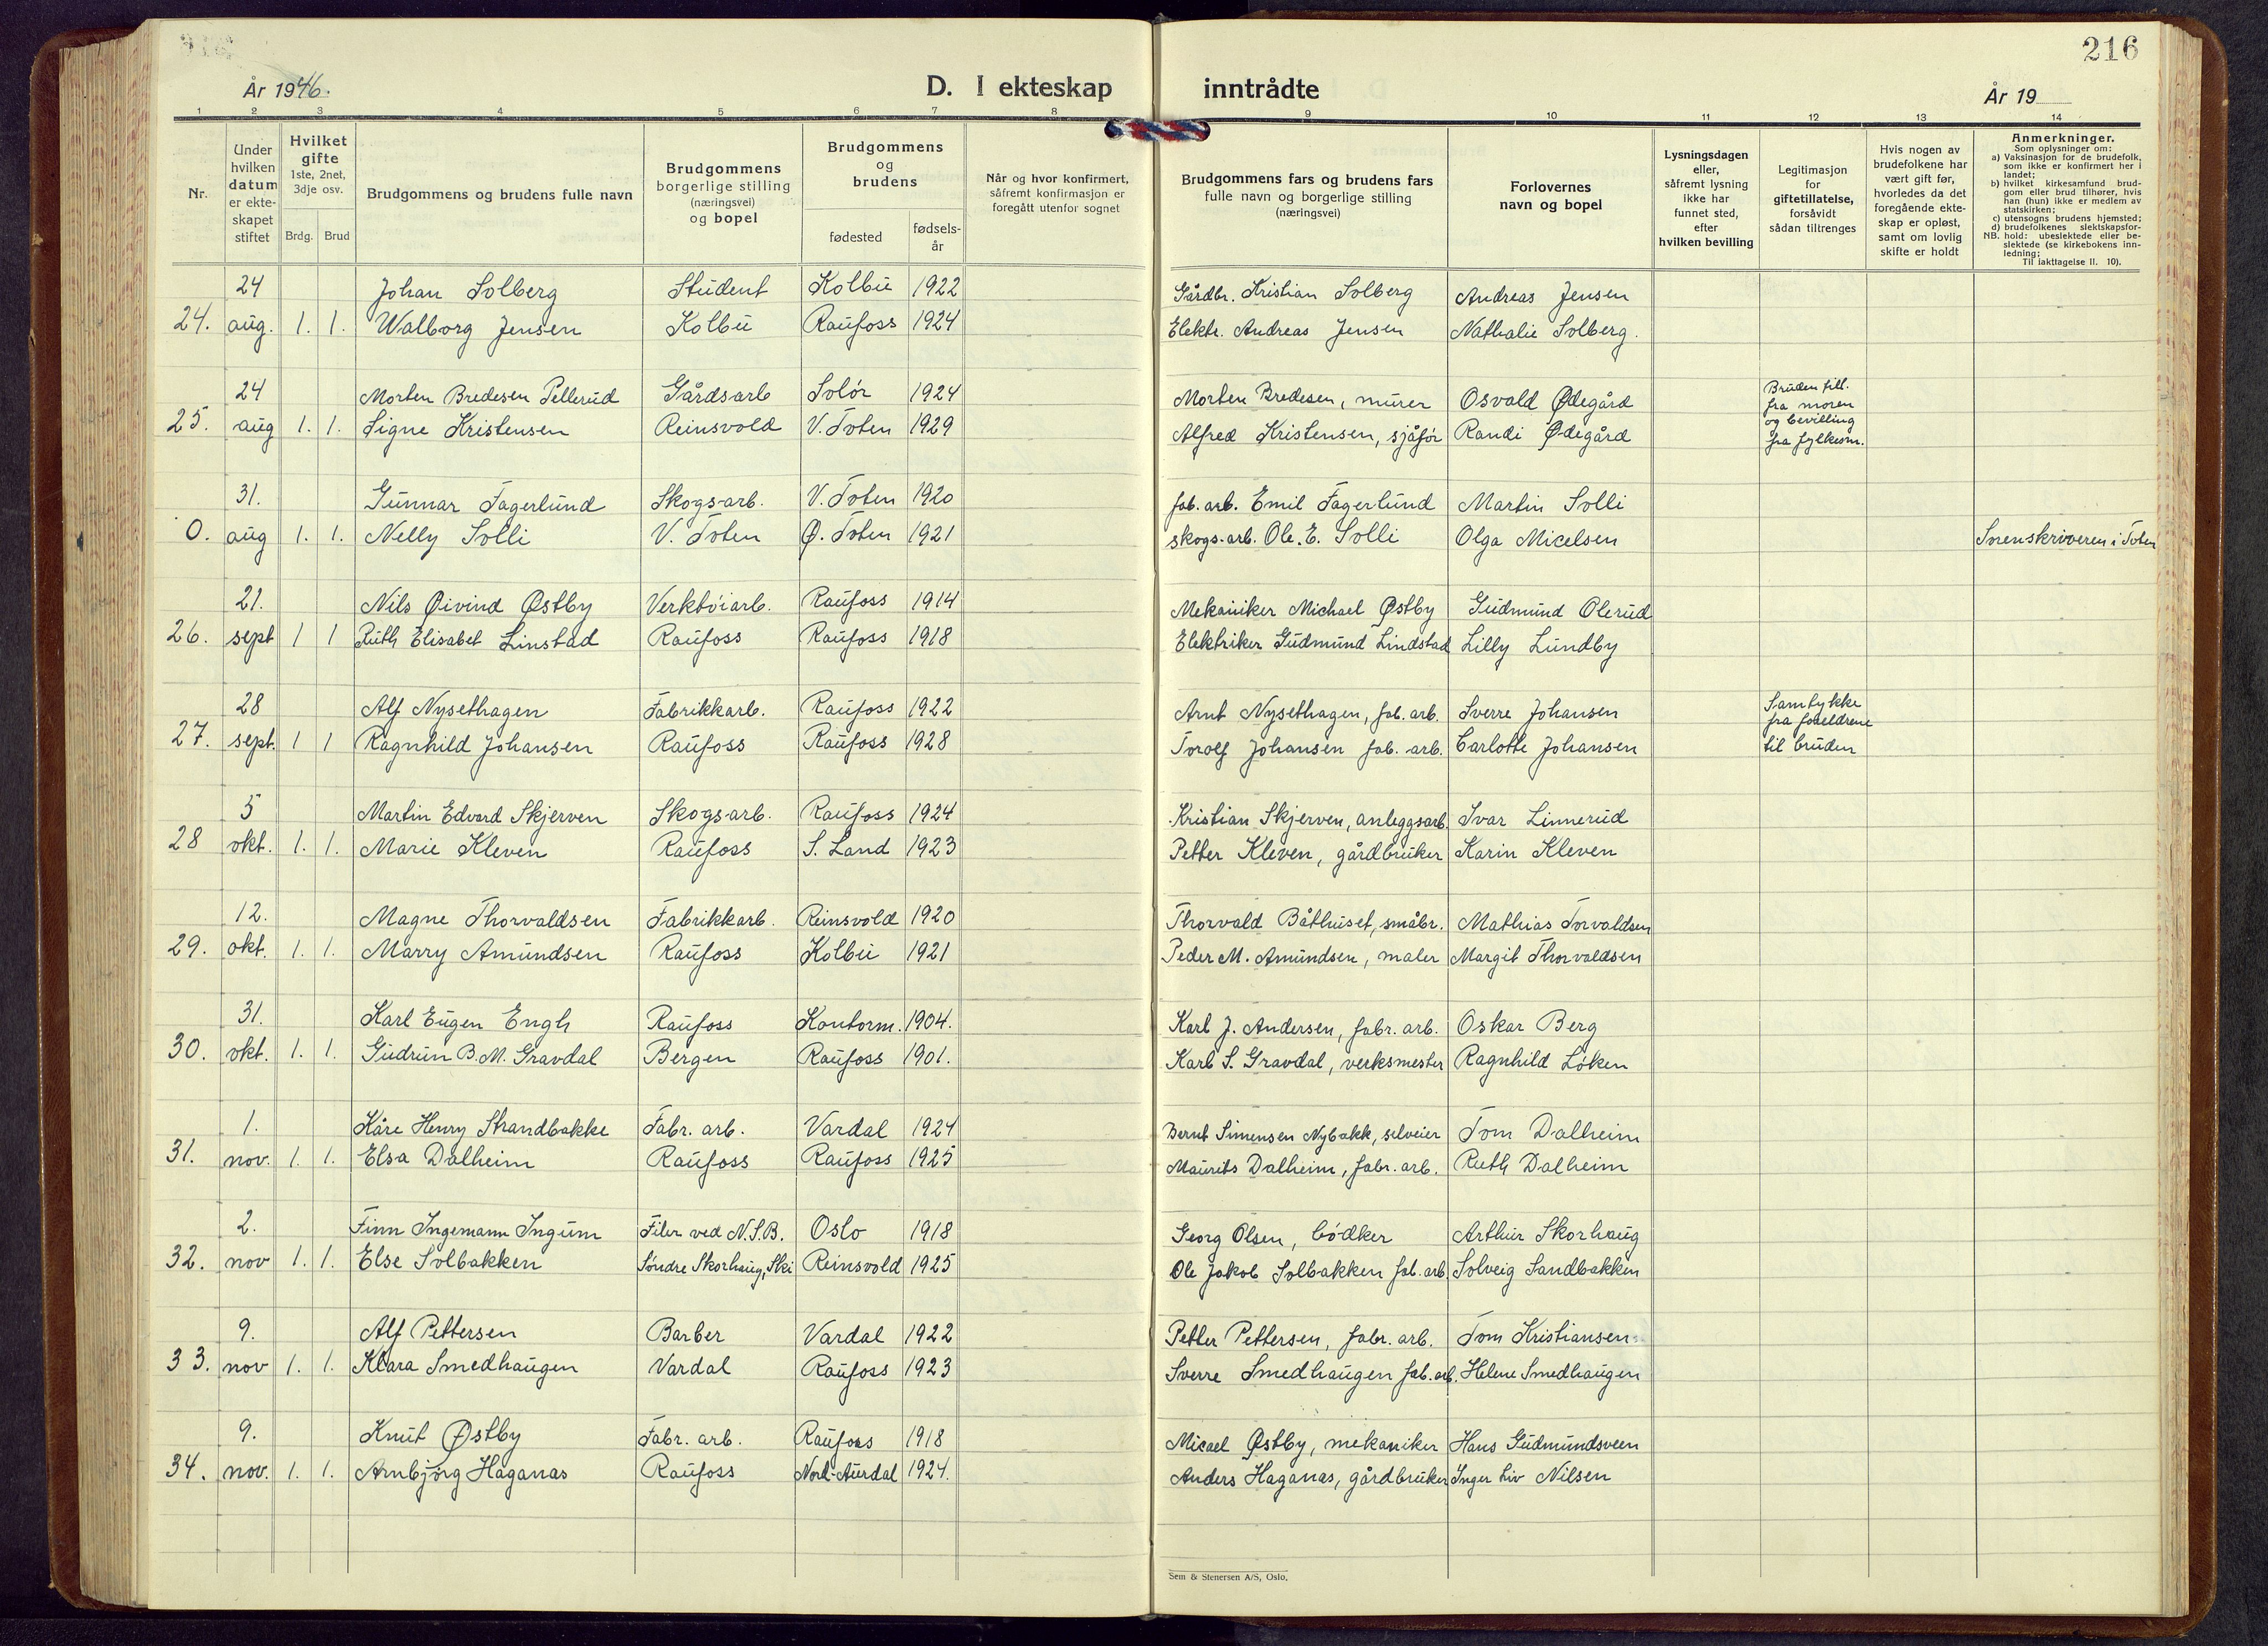 216
År 1946.
D. I ekteskap inntrådte
År 19
1 2 3 4 5 6 7 8 9 10 11 12 13 14
Nr.
Under
hvilken
datum
er ekte-
skapet
stiftet
Hvilket
gifte
1ste, 2net,
3dje osv.
Brdg. Brud
Brudgommens og brudens fulle navn
Brudgommens
borgerlige stilling
(næringsvei)
og bopel
Brudgommens
og
brudens
fødested
fødsels-
år
Når og hvor konfirmert,
såfremt konfirmasjon er
foregått utenfor sognet
Brudgommens fars og brudens fars
fulle navn og borgerlige stilling
(næringsvei)
Forlovernes
navn og bopel
Lysningsdagen
eller,
såfremt lysning
ikke har
funnet sted,
efter
hvilken bevilling
Legitimasjon
for
giftetillatelse,
forsåvidt
sådan tiltrenges
Hvis nogen av
brudefolkene har
vært gift før,
hvorledes da det
foregående ekte-
skap er opløst,
samt om lovlig
skifte er holdt
Anmerkninger.
Som oplysninger om:
a) Vaksinasjon for de brudefolk,
som ikke er konfirmert her i
landet;
b) hvilket kirkesamfund brud-
gom eller brud tilhører, hvis
han (hun) ikke er medlem av
statskirken;
c) utensogns brudens hjemsted;
d) brudefolkenes slektskapsfor-
NB. hold: ubeslektede eller be-
slektede (se kirkebokens inn-
ledning;
Til iakttagelse II. 10).
24 Johan Solberg Student Kolbu 1922 Gårdbr. Kristian Solberg Andreas Jensen
24. aug. 1. 1. Walborg Jensen Kolbu Raufoss 1924 Elektr. Andreas Jensen Nathalie Solberg.
24 Morten Bredesen Pellerud Gårdsarb Solør 1924 Morten Bredesen, murer Osvald Ødegård
25. aug 1. 1. Signe Kristensen Reinsvold V. Toten 1929 Alfred Kristensen, sjåfør Randi Ødegård
Bruden till.
fra moren
og bevilling
fra fylkesm.
31. Gunnar Fagerlund Skogsarb. V. Toten 1920 fab. arb. Emil Fagerlund Martin Solli
0. aug 1. 1. Nelly Solli V. Toten Ø. Toten 1921 skogs-arb. Ole. E. Solli Olga Micelsen Sorenskriveren i Toten
21. Nils Øivind Østby Verktøiarb. Raufoss 1914 Mekaniker Michael Østby Gudmund Olerud
26. sept 1 1 Ruth Elisabet Linstad Raufoss Raufoss 1918 Elektriker Gudmund Lindstad Lilly Lundby
28 Alf Nysethagen Fabrikkarb. Raufoss 1922 Arnt Nysethagen, fab. arb. Sverre Johansen
27. sept. 1 1 Ragnhild Johansen Raufoss Raufoss 1928 Torolf Johansen fab. arb. Carlotte Johansen
Samtykke
fra foreldrene
til bruden
5 Martin Edvard Skjerven Skogsarb. Raufoss 1924 Kristian Skjerven, anleggsarb. Ivar Linnerud
28 okt. 1. 1. Marie Kleven Raufoss S. Land 1923 Petter Kleven, gårdbruker Karin Kleven
12. Magne Thorvaldsen Fabrikkarb. Reinsvold 1920 Thorvald Båthuset, småbr. Mathias Torvaldsen
29. okt. 1. 1. Marry Amundsen Raufoss Kolbu 1921 Peder M. Amundsen, maler Margit Thorvaldsen
31. Karl Eugen Engh Raufoss Kontorm. 1904. Karl J. Andersen, fabr. arb. Oskar Berg
30. okt. 1. 1. Gudrun B.M. Gravdal Bergen Raufoss 1901. Karl S. Gravdal, verksmester Ragnhild Løken
1. Kåre Henry Strandbakke Fabr. arb. Vardal 1924 Bernt Simensen Nybakk, selveier Tom Dalheim
31. nov. 1. 1. Elsa Dalheim Raufoss Raufoss 1925 Maurits Dalheim, fabr. arb. Ruth Dalheim
2. Finn Ingemann Ingum Filer ved N.S.B. Oslo 1918 Georg Olsen, bødker Arthur Skorhaug
32. nov 1. 1. Else Solbakken Søndre Skorhaug, Ski Reinsvold 1925 Ole Jakob Solbakken fab. arb. Solveig Sandbakken
9. Alf Pettersen Barber Vardal 1922 Petter Pettersen, fabr. arb. Tom Kristiansen
33. nov 1. 1. Klara Smedhaugen Vardal Raufoss 1923 Sverre Smedhaugen fab. arb. Helene Smedhaugen
9. Knut Østby Fabr. arb. Raufoss 1918 Micael Østby, mekaniker Hans Gudmundsveen
34. nov. 1. 1. Arnbjørg Haganas Raufoss Nord-Aurdal 1924. Anders Haganas, gårdbruker Inger Liv Nilsen
Sem & Stenersen A/S, Oslo.